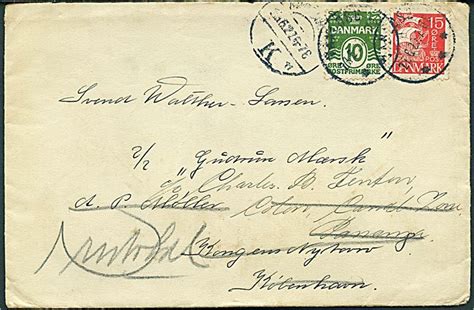 DANMARK 15
10
ØRE ØRE
POSTFRIMÆRKE
DANMARK
K
Svend Walther-Larsen.
"Gudrun Mærsk"
c/o Charles B. Fenton,
A. P. Møller Colon Canal Zone
Panama
Kongens Nytorv
København.